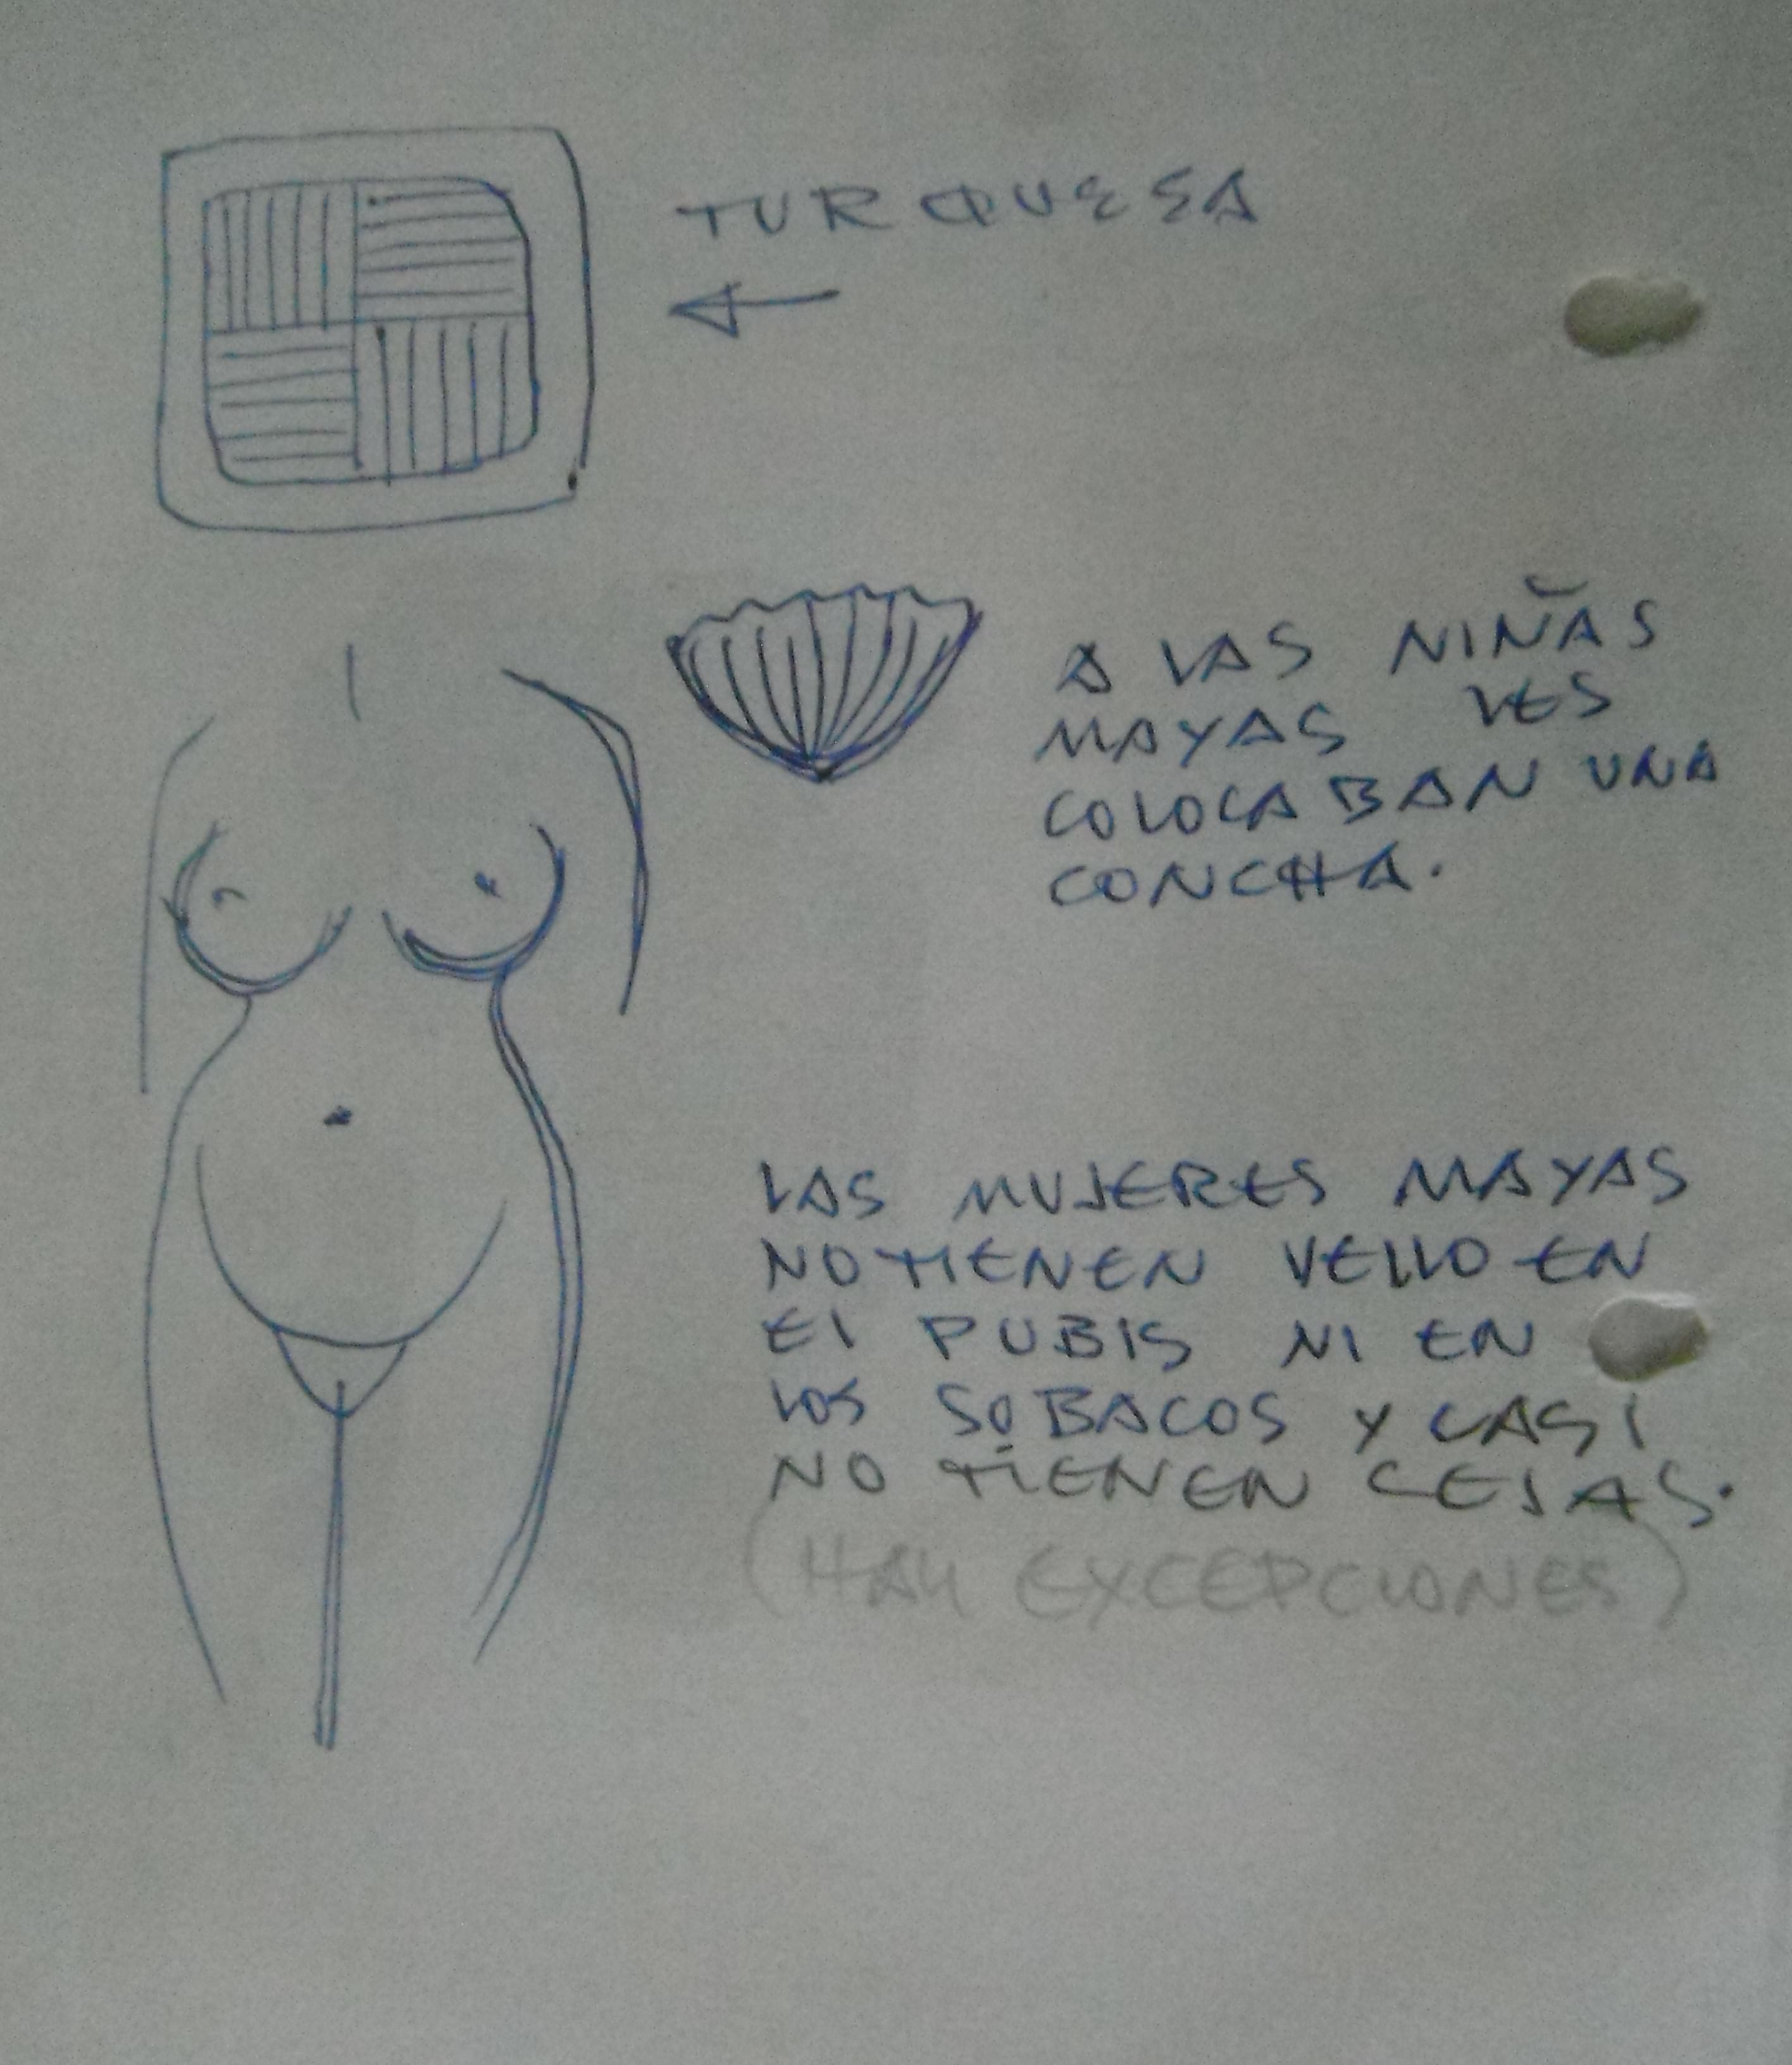 TURQUESA
A LAS NIÑAS
MAYAS LES
COLOCABAN UNA
CONCHA.
LAS MUJERES MAYAS
NO TIENEN VELLO EN
EL PUBIS NI EN
LOS SOBACOS Y CASI
NO TIENEN CEJAS.
(HAY EXCEPCIONES)